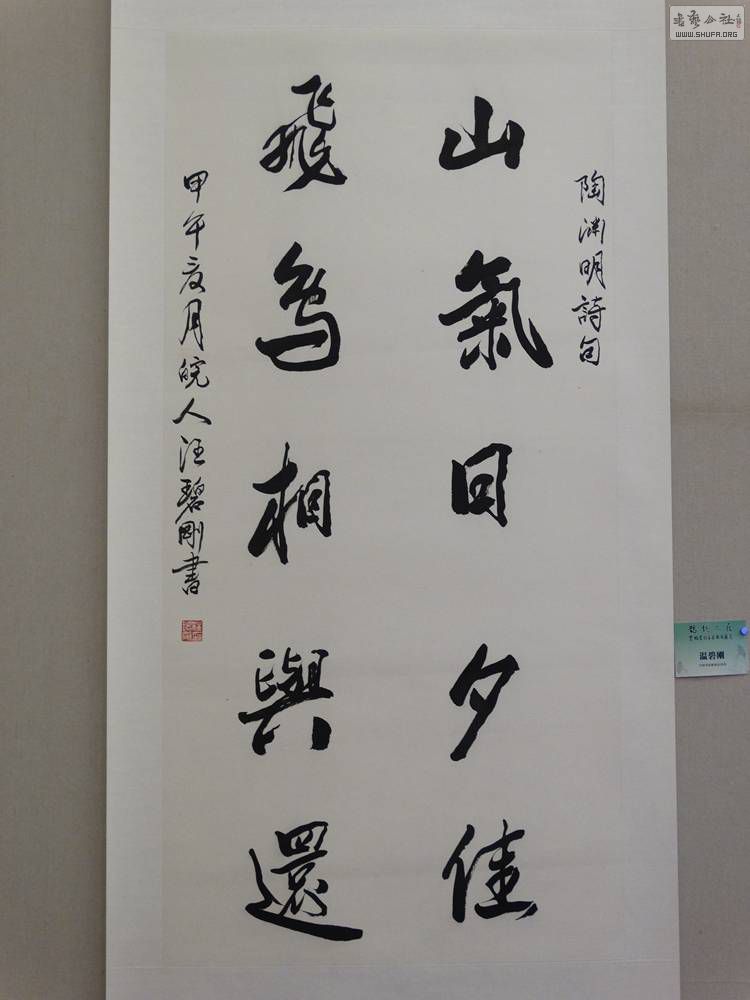 陶淵明詩句
山氣日夕佳
飛鳥相與還
甲午夏月皖人汪碧剛書
温碧剛
WWW.SHUFA.ORG